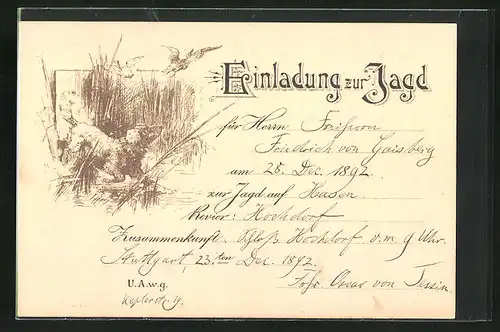 Einladung zur Jagd
für Herrn Freiherrn
Friedrich von Gaisberg
am 28. Dec. 1892.
zur Jagd auf Hasen
Revier: Hochdorf
Zusammenkunft: Schloß Hochdorf v.m. 9 Uhr.
Stuttgart, 23.ten Dec. 1892.
U.A.w.g. Frhr. Oscar von Tessin.
Keplerstr. 19.